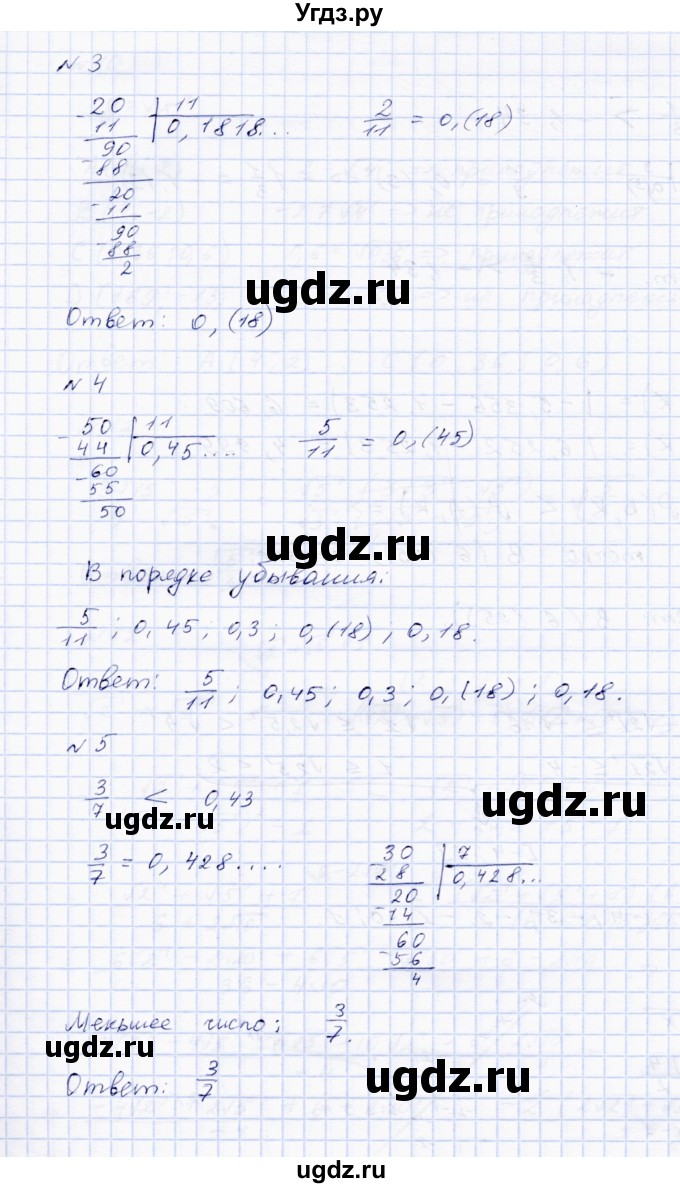 Угдз.ру
N 3
20 | 11
11 0,1818...
2/11 = 0,(18)
90
88
20
11
90
88
2
ugdz.ru
Ответ: 0,(18)
N 4
50 | 11
44 0,45....
5/11 = 0,(45)
60
55
50
ugdz.ru
В порядке убывания:
5/11 ; 0,45 ; 0,3 ; 0,(18) ; 0,18.
Ответ: 5/11 ; 0,45 ; 0,3 ; 0,(18) ; 0,18.
N 5
3/7 < 0,43
ugdz.ru
ugdz.ru
3/7 = 0,428....
30 | 7
28 0,428...
20
14
60
56
4
Меньшее число: 3/7.
ugdz.ru
Ответ: 3/7
ugdz.ru
ugdz.ru